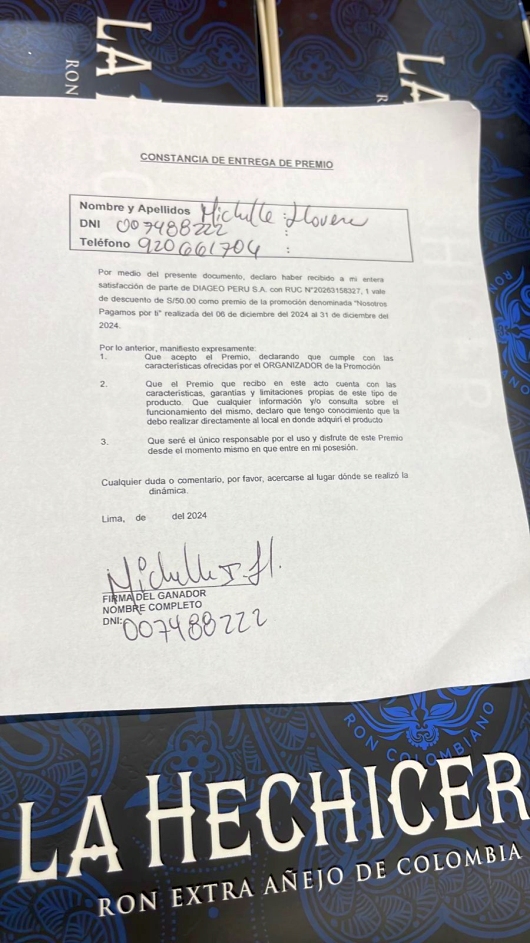 LA
RON
LA
R
CONSTANCIA DE ENTREGA DE PREMIO
Nombre y Apellidos Michelle
DNI 007488222 :
Teléfono 920661704 :
Por medio del presente documento, declaro haber recibido a mi entera
satisfacción de parte de DIAGEO PERU S.A. con RUC N°20263158327, 1 vale
de descuento de S/50.00 como premio de la promoción denominada "Nosotros
Pagamos por ti" realizada del 06 de diciembre del 2024 al 31 de diciembre del
2024.
Por lo anterior, manifiesto expresamente:
1. Que acepto el Premio, declarando que cumple con las
características ofrecidas por el ORGANIZADOR de la Promoción
2. Que el Premio que recibo en este acto cuenta con las
características, garantías y limitaciones propias de este tipo de
producto. Que cualquier información y/o consulta sobre el
funcionamiento del mismo, declaro que tengo conocimiento que la
debo realizar directamente al local en donde adquirí el producto
3. Que seré el único responsable por el uso y disfrute de este Premio
desde el momento mismo en que entre en mi posesión.
Cualquier duda o comentario, por favor, acercarse al lugar dónde se realizó la
dinámica.
Lima, de del 2024
FIRMA DEL GANADOR
NOMBRE COMPLETO
DNI: 007488222
RON COLOMBIANO
LA HECHICER
RON EXTRA AÑEJO DE COLOMBIA